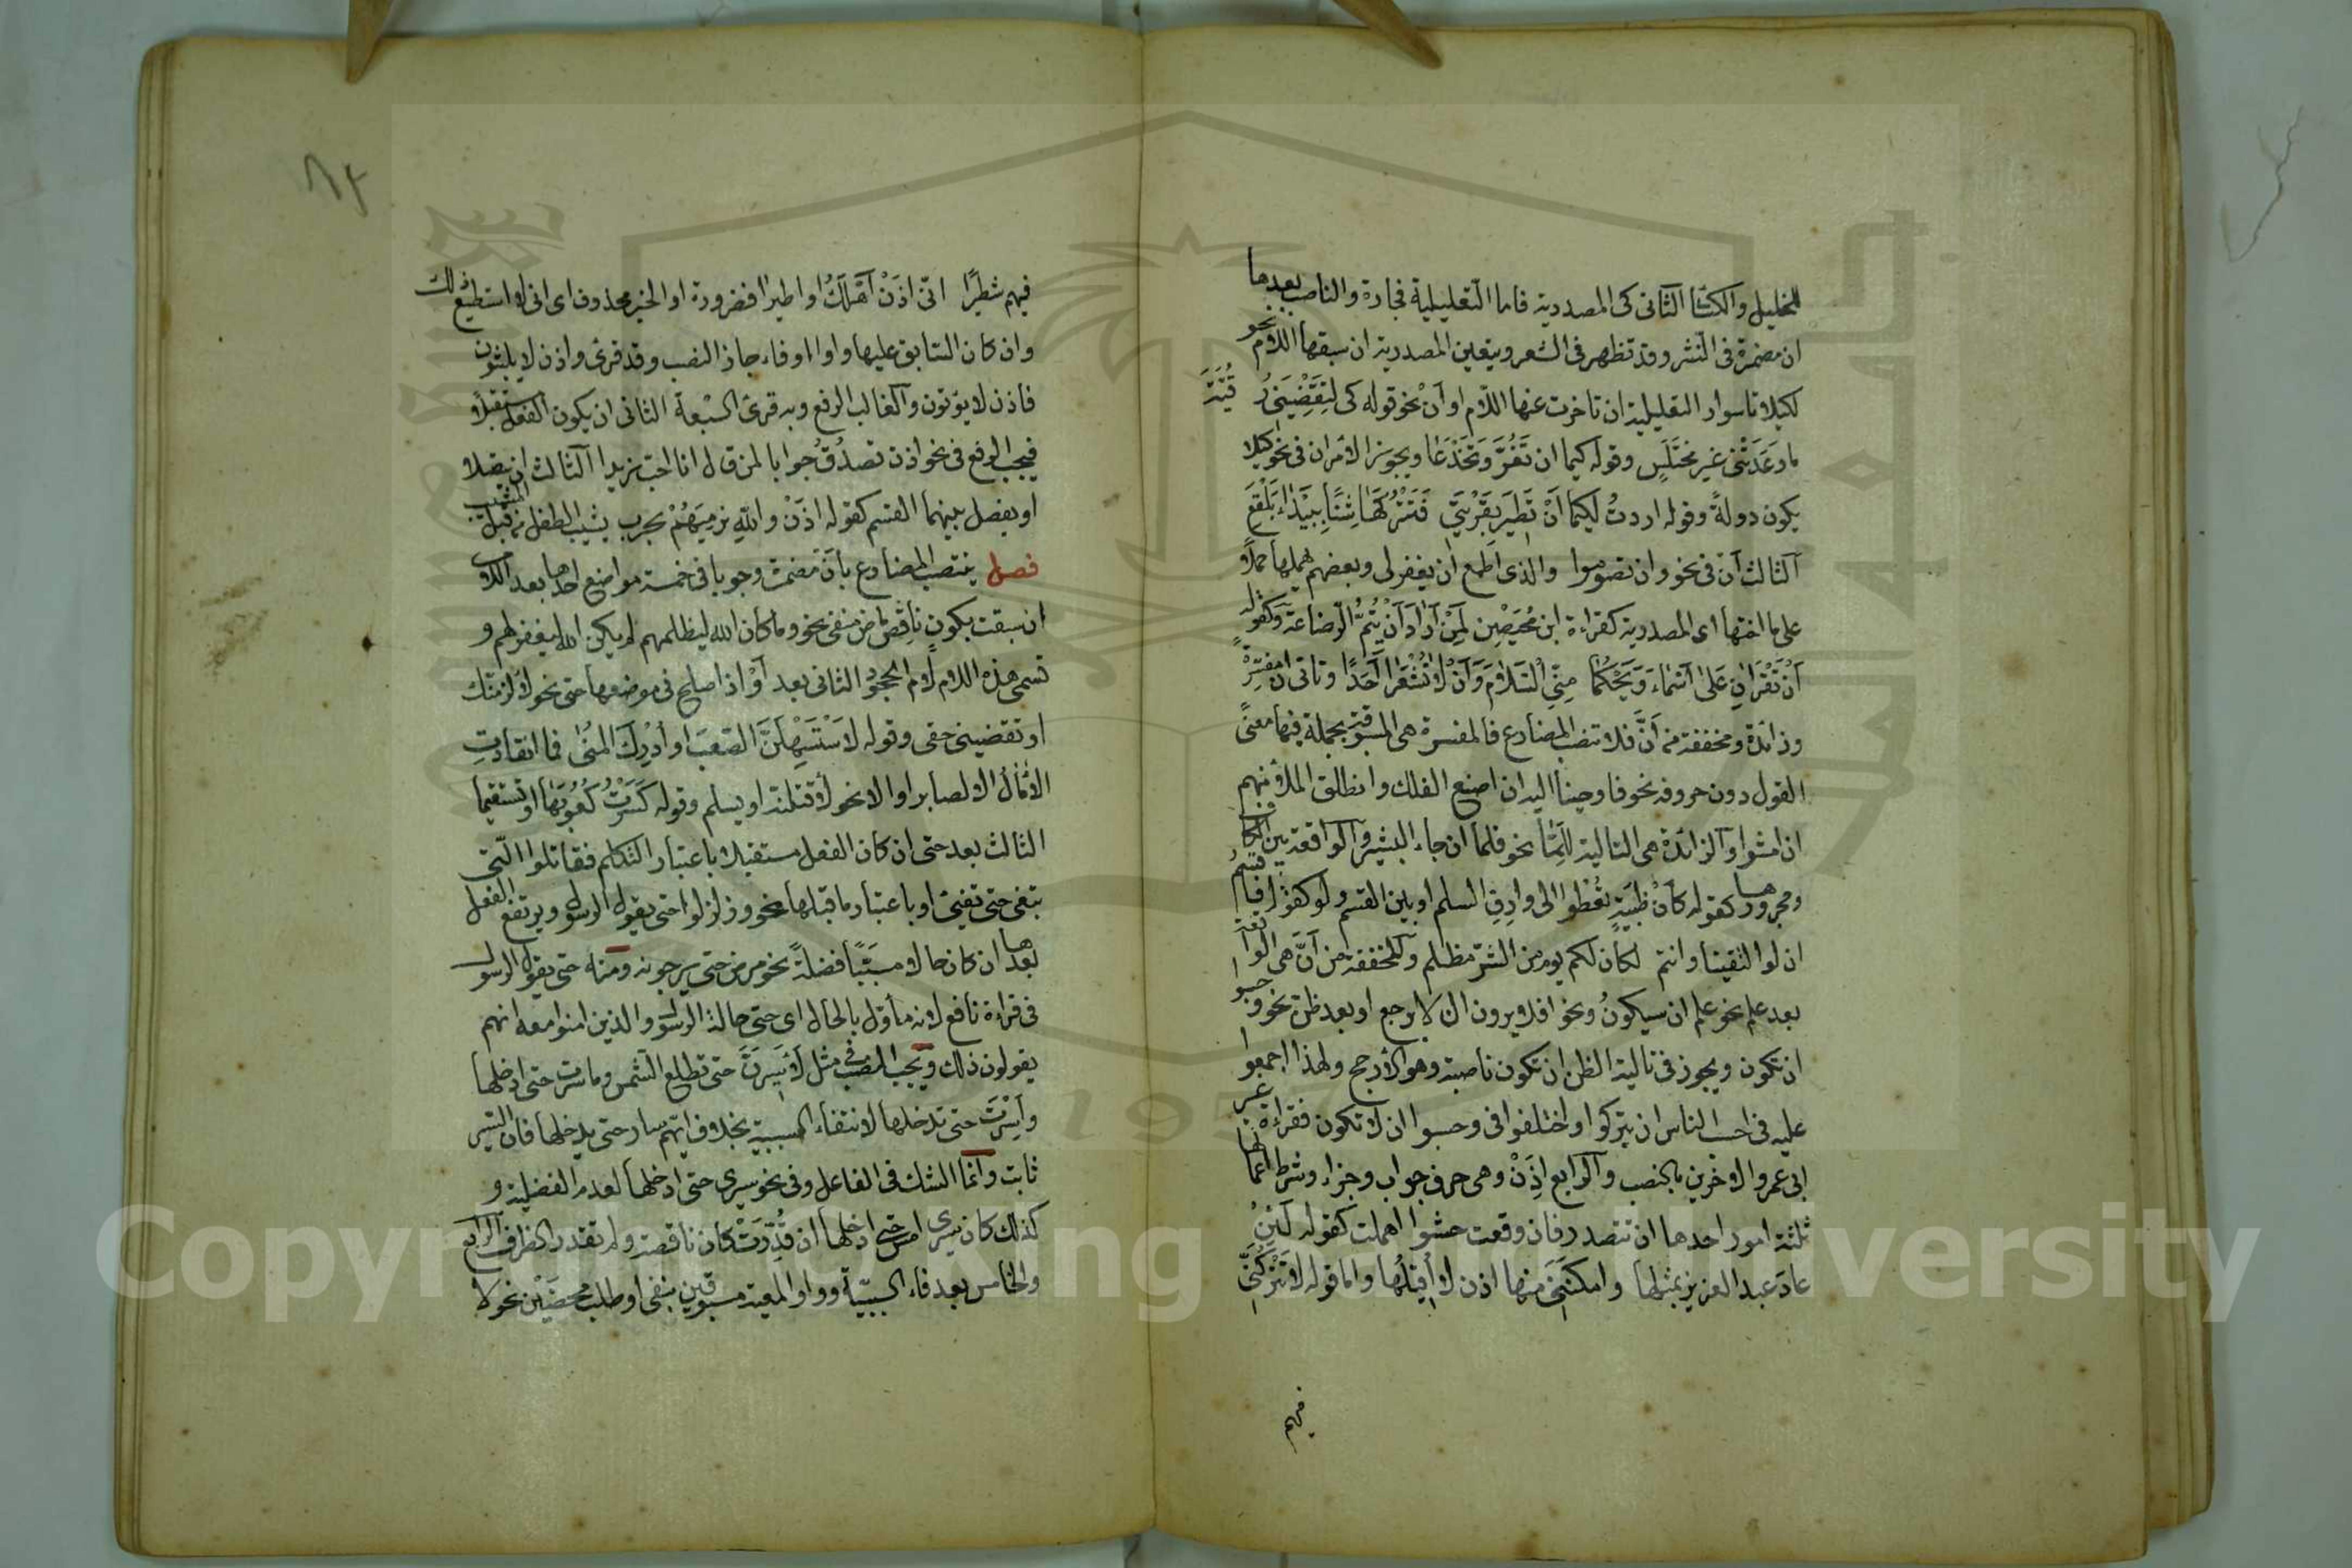 للخليل والكسائي الثاني كي المصدرية فاما التعليلية فجارة والناصب بعدها
ان مضمرة في النثر وقد تظهر في الشعر ويتعين المصدرية ان سبقها اللام نحو
لكيلا تاسوا والتعليلية ان تاخرت عنها اللام او أن نحو قوله كي لتقضيني رقيّة
ما وعدتني غير مختلس وقوله كيما ان تغرّ وتخدعا ويجوز الامران في نحو كيلا
يكون دولةً وقوله اردتُ لكيما أنْ تطير بقربتي فتتركها شنًّا ببيداء بلقع
الثالث أن في نحو وان تصوموا والذي اطمع ان يغفر لي وبعضهم يهملها حملا
على ما اختها اى المصدرية كقراءة ابن محيصن لمن أراد أنْ يتمُّ الرضاعة وكقوله
أنْ تقرآنِ على أسماء ويحكما مني السلام وأنْ لا تُشعرا أحدًا وتاتي ان مفسّرة
وزائدة ومخففة من أنّ فلا تنصب المضارع فالمفسرة هي المسبوقة بجملة فيها معنى
القول دون حروفه نحو فاوحينا اليه ان اصنع الفلك وانطلق الملأ منهم
ان امشوا والزائدة هي التالية للمّا نحو فلما ان جاء البشير والواقعة بين الكاف
ومجرورها كقوله كأن ظبيةٍ تعطوا الى وارق السلم او بين القسم ولو كقوله فاقسم
ان لو التقينا وانتم لكان لكم يوم من الشرّ مظلم والمخففة من أنّ هي الواقعة
بعد علم نحو علم ان سيكونُ ونحو افلا يرون ان لا يرجع او بعد ظن نحو وحسبوا
ان تكون ويجوز في تالية الظن ان تكون ناصبة وهو الارجح ولهذا اجمعوا
عليه في احسب الناس ان يتركوا واختلفوا في وحسبوا ان لا تكون فقراءة غير
ابي عمرو والاخرين بالنصب والرابع اذنْ وهي حرف جواب وجزاء وشرط اعمالها
ثلثة امور احدها ان تتصدر فان وقعت حشوا اهملت كقوله لئن
عاد عبد العزيز بمثلها وامكنني منها اذن لا أقيلُها واما قوله لا تتركنّي
فيهم
٨٢
فيهم شطيرًا انّى اذنْ أهلكَ او اطيرا فضرورة او الخبر محذوف اى انى لا استطيع ذلك
وان كان السابق عليها واوا او فاء جاز النصب وقد قرئ واذن لا يلبثون
فاذن لا يؤتون والغالب الرفع وبه قرئ السبعة الثاني ان يكون الفعل مستقبلا
فيجب الرفع في نحو اذن تصدقُ جوابا لمن قال انا احب زيدا الثالث ان يتصلا
او يفصل بينهما القسم كقوله اذنْ والله نرميَهُمْ بحرب يشيب الطفل من قبل المشيب
فصل ينتصب المضارع بأن مضمرة وجوبا في خمسة مواضع احدها بعد اللام
ان سبقت بكون ناقص ماض منفى نحو وما كان الله ليظلمهم لم يكن الله ليغفر لهم و
تسمى هذه اللام لام الجحود الثاني بعد أوْ اذا صلح في موضعها حتى نحو لألزمنّك
او تقضيني حقى وقوله لاستسهلنَّ الصعبَ او أدركَ المنى فما انقادتِ
الآمالُ الا لصابر او الا نحو لأقتلنه او يسلم وقوله كسرتُ كعوبها او تستقيما
الثالث بعد حتى ان كان الفعل مستقبلا باعتبار التكلم فقاتلوا التى
تبغى حتى تفئ او باعتبار ما قبلها نحو وزلزلوا حتى يقول الرسول ويرتفع الفعل
بعدها ان كان حالا مسبّبًا فضلةً نحو مرض حتى لا يرجونه ومنه حتى يقول الرسول
في قراءة نافع لانه مأوّل بالحال اى حتى حالة الرسول والذين امنوا معه انهم
يقولون ذلك ويجب النصب في مثل لأسيرنّ حتى تطلع الشمس وما سرت حتى ادخلها
وأسرتَ حتى تدخلها لانتفاء السببية بخلاف ايّهم سار حتى يدخلها فان السير
ثابت وانما الشك في الفاعل وفي نحو سيرى حتى ادخلها لعدم الفضلية و
كذلك كان سيرى امس حتى ادخلها ان قُدّرتْ كان ناقصة ولم تقدر الظرف الرابع
والخامس بعد فاء السببيّة وواو المعية مسبوقين بنفى او طلب محضين نحو لا
Copyright © King University